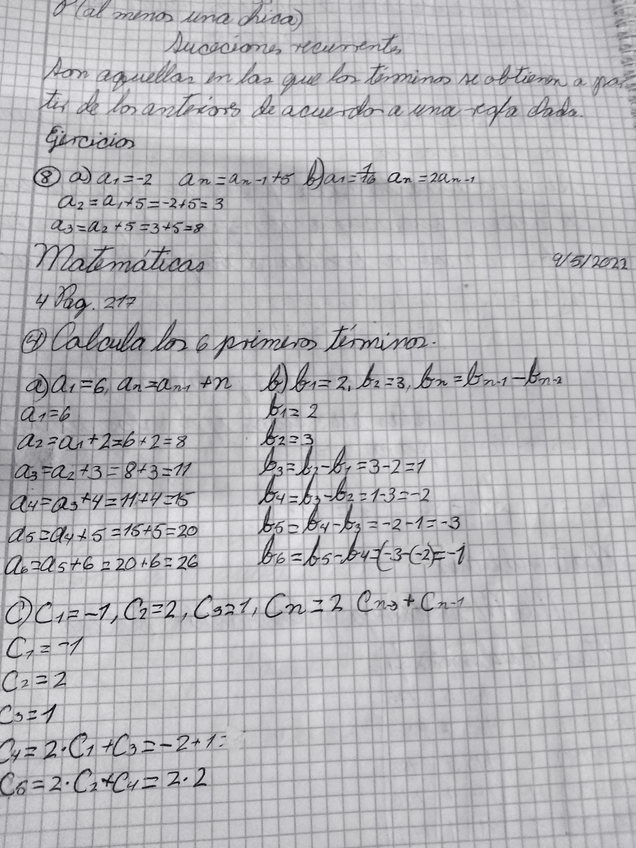 (al menos una chica)
Sucesiones recurrentes
Son aquellas en las que los términos se obtienen a par-
tir de los anteriores de acuerdo a una regla dada.
Ejercicios
⑧ a) a₁=-2 aₙ=aₙ₋₁+5 b) a₁=1/16 aₙ=2aₙ₋₁
a₂=a₁+5=-2+5=3
a₃=a₂+5=3+5=8
Matemáticas 9/5/2022
4 Pág. 217
④ Calcula los 6 primeros términos.
a) a₁=6, aₙ=aₙ₋₁+n b) b₁=2, b₂=3, bₙ=bₙ₋₁-bₙ₋₂
a₁=6 b₁=2
a₂=a₁+2=6+2=8 b₂=3
a₃=a₂+3=8+3=11 b₃=b₂-b₁=3-2=1
a₄=a₃+4=11+4=15 b₄=b₃-b₂=1-3=-2
a₅=a₄+5=15+5=20 b₅=b₄-b₃=-2-1=-3
a₆=a₅+6=20+6=26 b₆=b₅-b₄=(-3-(-2)=-1
C) C₁=-1, C₂=2, C₃=1, Cₙ=2 Cₙ₋₃+Cₙ₋₁
C₁=-1
C₂=2
C₃=1
C₄=2·C₁+C₃=-2+1=
C₅=2·C₂+C₄=2·2